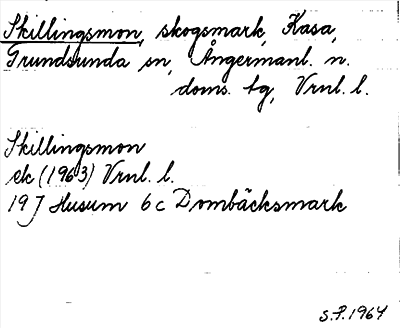 Skillingsmon, skogsmark, Kasa,
Grundsunda sn, Ångermanl. n.
doms. lg, Vrnl. l.
Skillingsmon
ek (1963) Vrnl. l.
19 J Husum 6 c Dombäcksmark
S.P. 1964